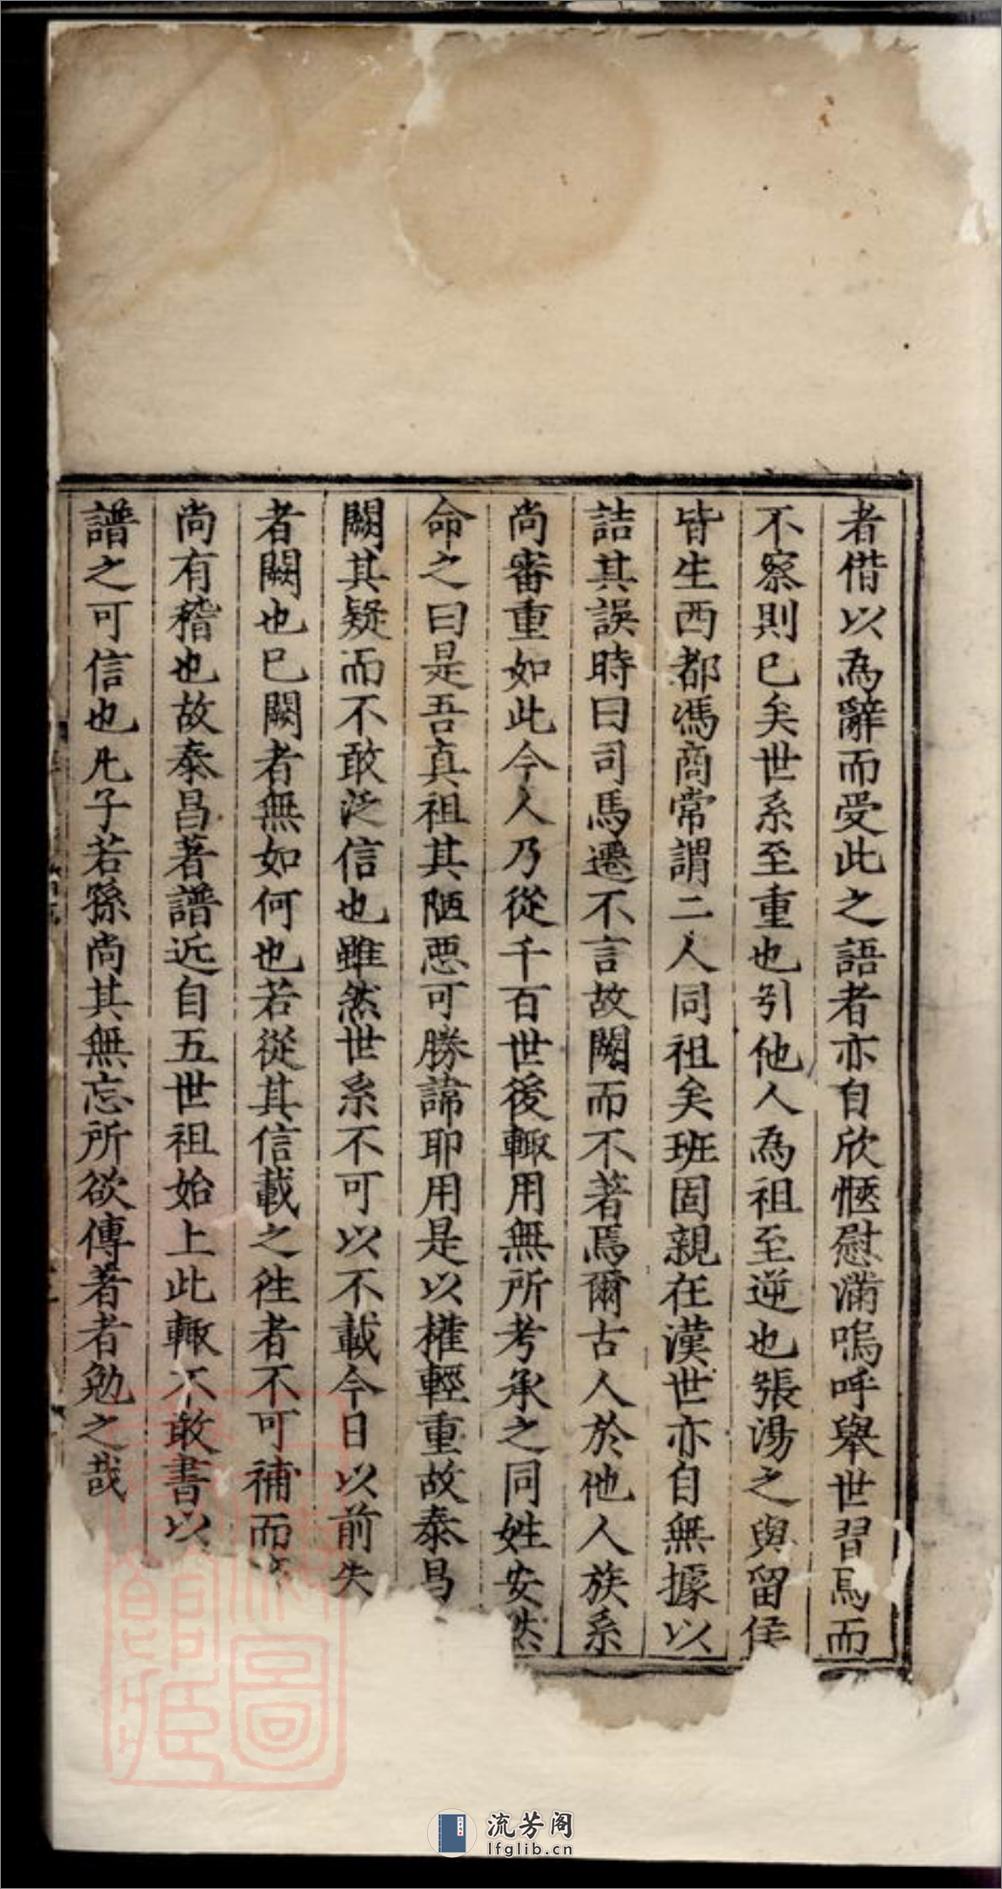 者借以為辭而受此之語者亦自欣愜慰滿嗚呼舉世習焉而
不察則已矣世系至重也引他人為祖至逆也張湯之與留侯
皆生西都馮商常謂二人同祖矣班固親在漢世亦自無據以
詰其誤時曰司馬遷不言故闕而不著焉爾古人於他人族系
尚審重如此今人乃從千百世後輙用無所考承之同姓安然
命之曰是吾真祖其陋惡可勝諦耶用是以權輕重故泰昌
闕其疑而不敢泛信也雖然世系不可以不載今日以前失
者闕也已闕者無如何也若從其信載之徃者不可補而
尚有稽也故泰昌著譜近自五世祖始上此輙不敢書以
譜之可信也凡子若孫尚其無忘所欲傳著者勉之哉
流芳阁
lfglib.cn